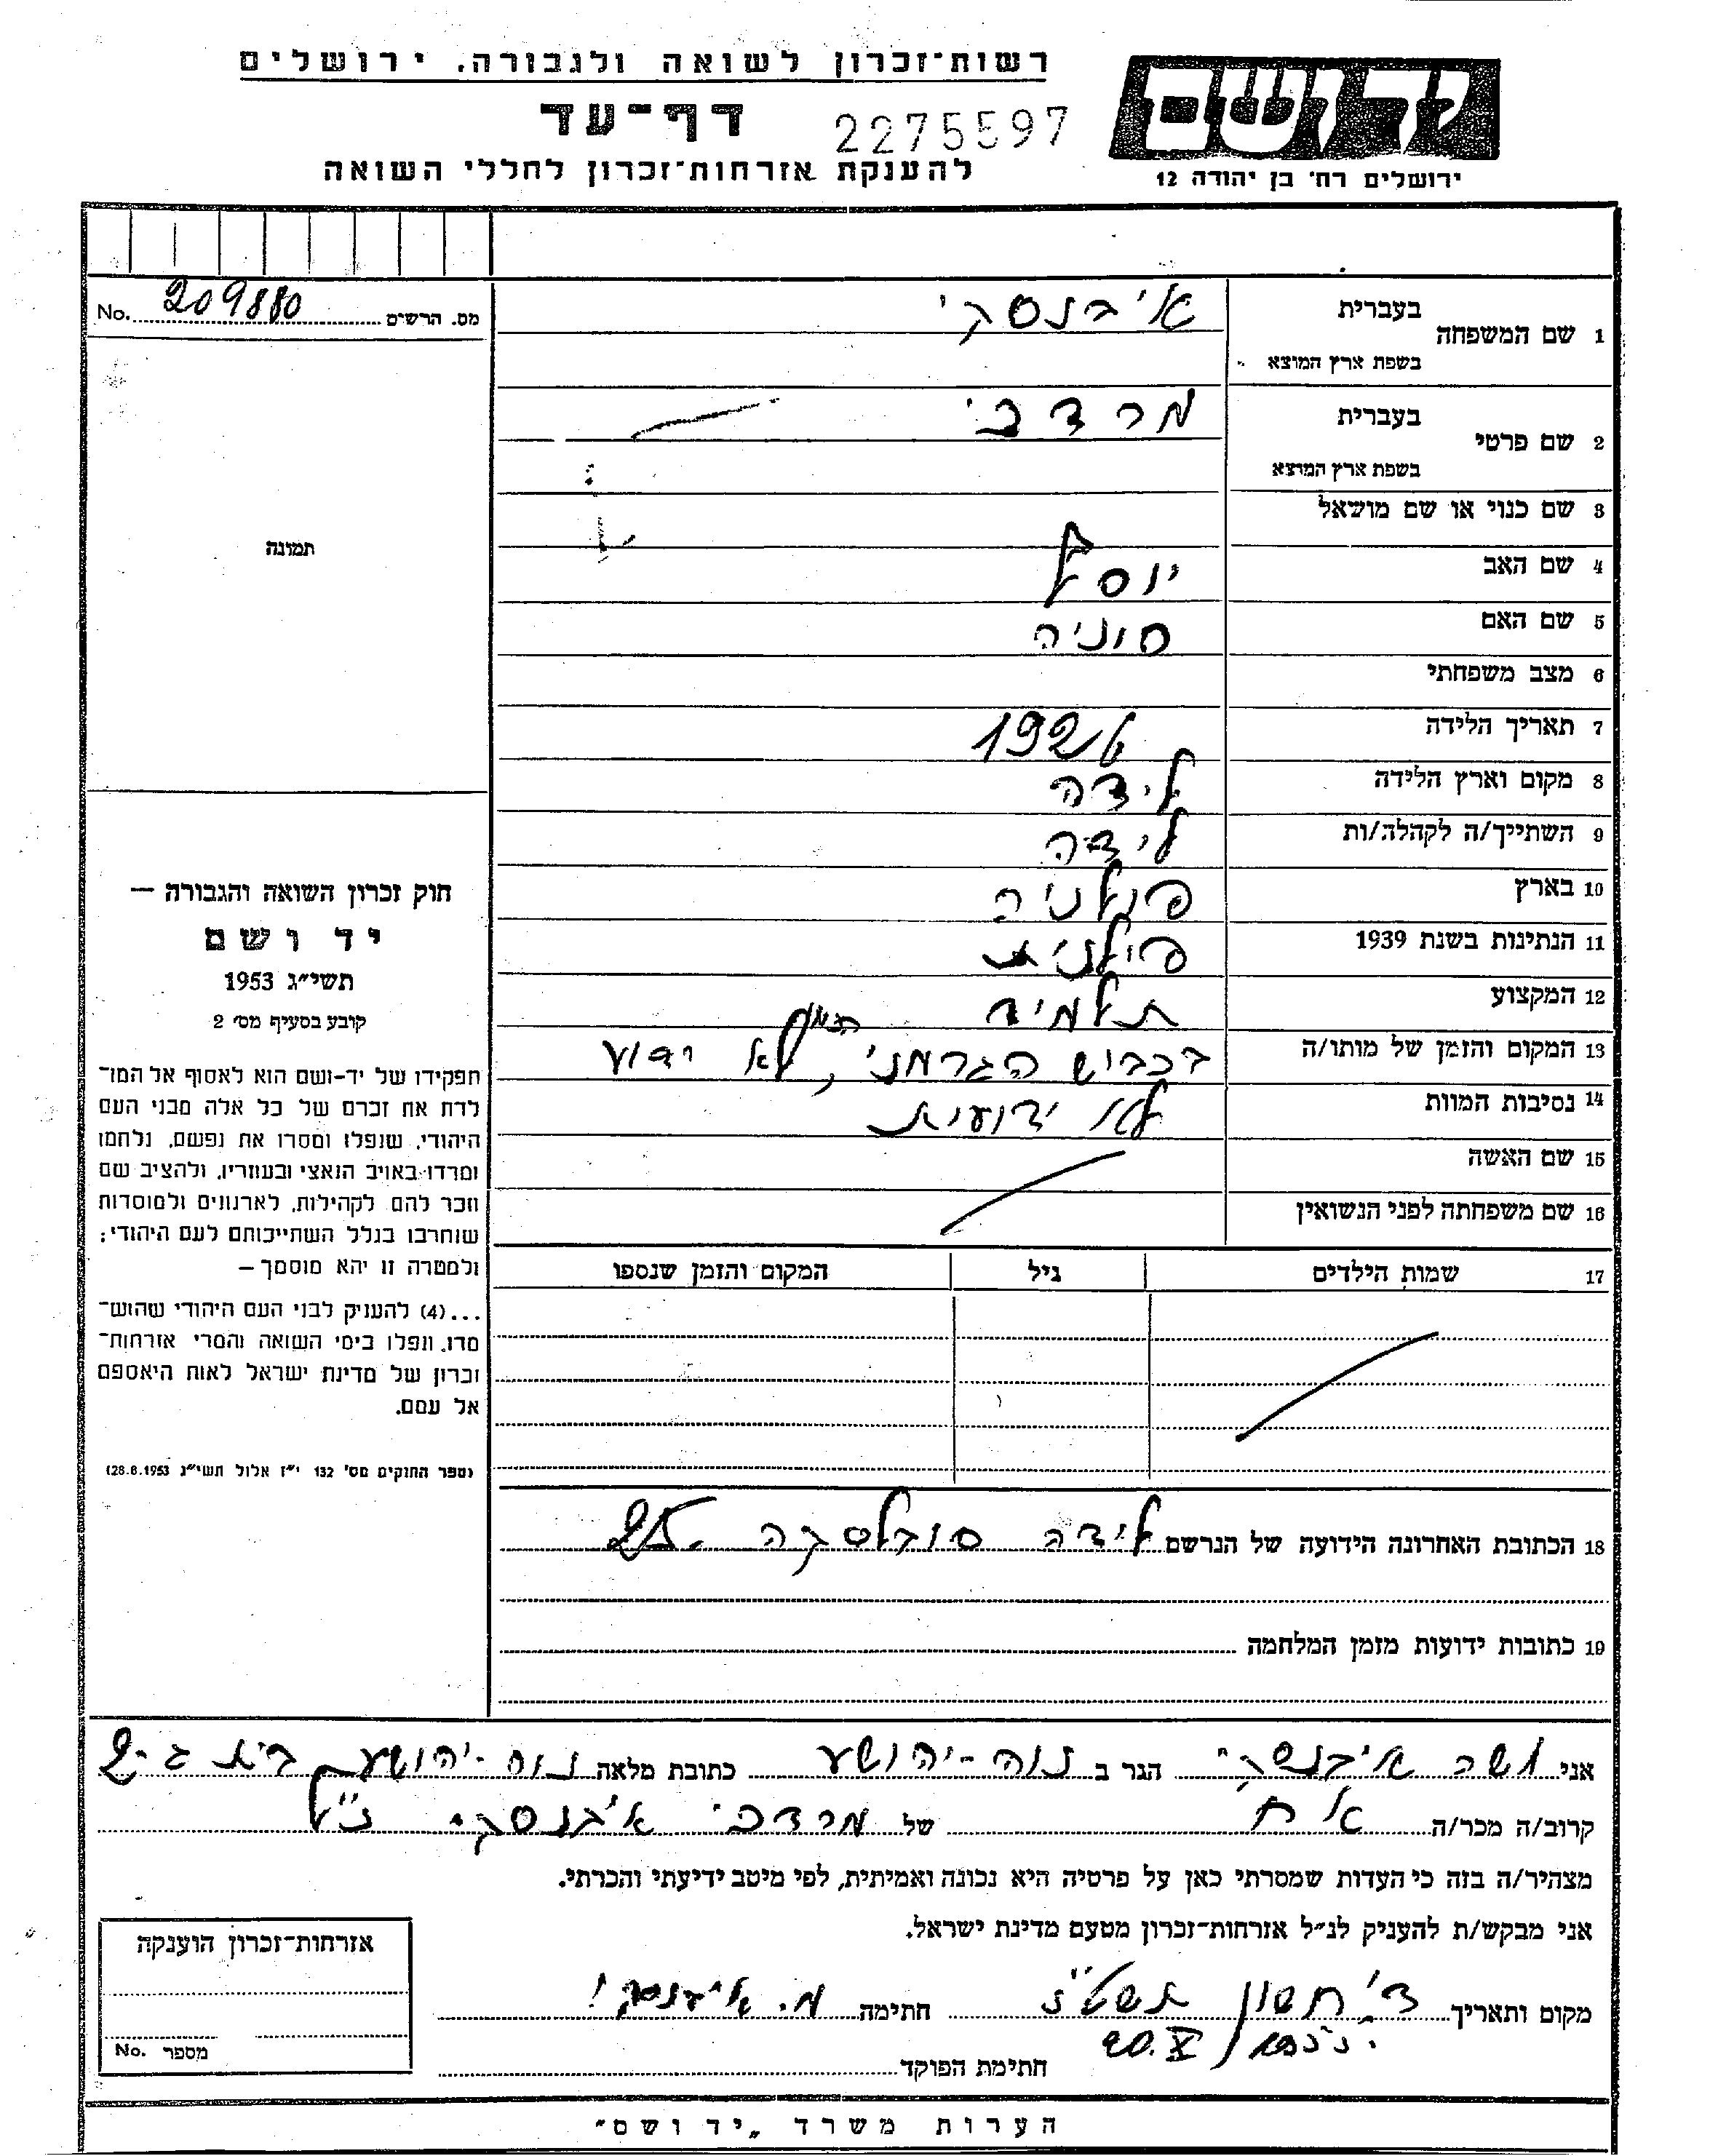 רשות־זכרון לשואה ולגבורה. ירושלים
דף־עד
2275597
להענקת אזרחות־זכרון לחללי השואה
יד ושם
ירושלים רח׳ בן יהודה 12
מס. הרשים 209880 No.
תמונה
חוק זכרון השואה והגבורה —
יד ושם
תשי״ג 1953
קובע בסעיף מס׳ 2
תפקידו של יד־ושם הוא לאסוף אל המו־
לדת את זכרם של כל אלה מבני העם
היהודי, שנפלו ומסרו את נפשם, נלחמו
ומרדו באויב הנאצי ובעוזריו, ולהציב שם
וזכר להם לקהילות, לארגונים ולמוסדות
שנחרבו בגלל השתייכותם לעם היהודי;
ולמטרה זו יהא מוסמך —
...(4) להעניק לבני העם היהודי שהוש־
מדו, ונפלו בימי השואה והמרי אזרחות־
זכרון של מדינת ישראל לאות היאספם
אל עמם.
(ספר החוקים מס׳ 132 י״ז אלול תשי״ג 28.8.1953)
1 שם המשפחה בעברית איבנסקי
בשפת ארץ המוצא
2 שם פרטי בעברית מרדכי
בשפת ארץ המוצא
3 שם כנוי או שם מושאל
4 שם האב יוסף
5 שם האם סוניה
6 מצב משפחתי
7 תאריך הלידה
8 מקום וארץ הלידה לידה
9 השתייך/ה לקהלה/ות לידה
10 בארץ פולניה
11 הנתינות בשנת 1939 פולנית
12 המקצוע תלמיד
13 המקום והזמן של מותו/ה בכבוש הגרמני, לא ידוע
14 נסיבות המוות לא ידועות
15 שם האשה
16 שם משפחתה לפני הנשואין
17 שמות הילדים גיל המקום והזמן שנספו
18 הכתובת האחרונה הידועה של הנרשם לידה סובלסקה
19 כתובות ידועות מזמן המלחמה
אני משה איבנסקי הגר ב נוה־יהושע כתובת מלאה נוה־יהושע, בית ג־2
קרוב/ה מכר/ה אח של מרדכי איבנסקי ז״ל
מצהיר/ה בזה כי העדות שמסרתי כאן על פרטיה היא נכונה ואמיתית, לפי מיטב ידיעתי והכרתי.
אני מבקש/ת להעניק לנ״ל אזרחות־זכרון מטעם מדינת ישראל.
מקום ותאריך ד׳ חשון תשט״ז חתימה מ. איבנסקי
20.X
חתימת הפוקד
אזרחות־זכרון הוענקה
מספר No.
הערות משרד „יד ושם״